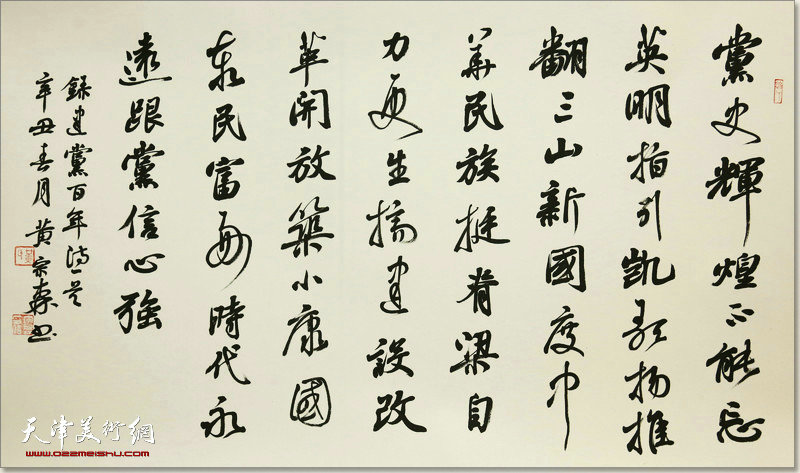 黨史輝煌不能忘
英明指引凱歌揚推
翻三山新國度中
華民族挺脊梁自
力更生搞建設改
革開放築小康國
泰民富時代永
遠跟黨信心強
錄建黨百年詩一首
辛丑春月黃宗書
天津美術網
www.022meishu.com